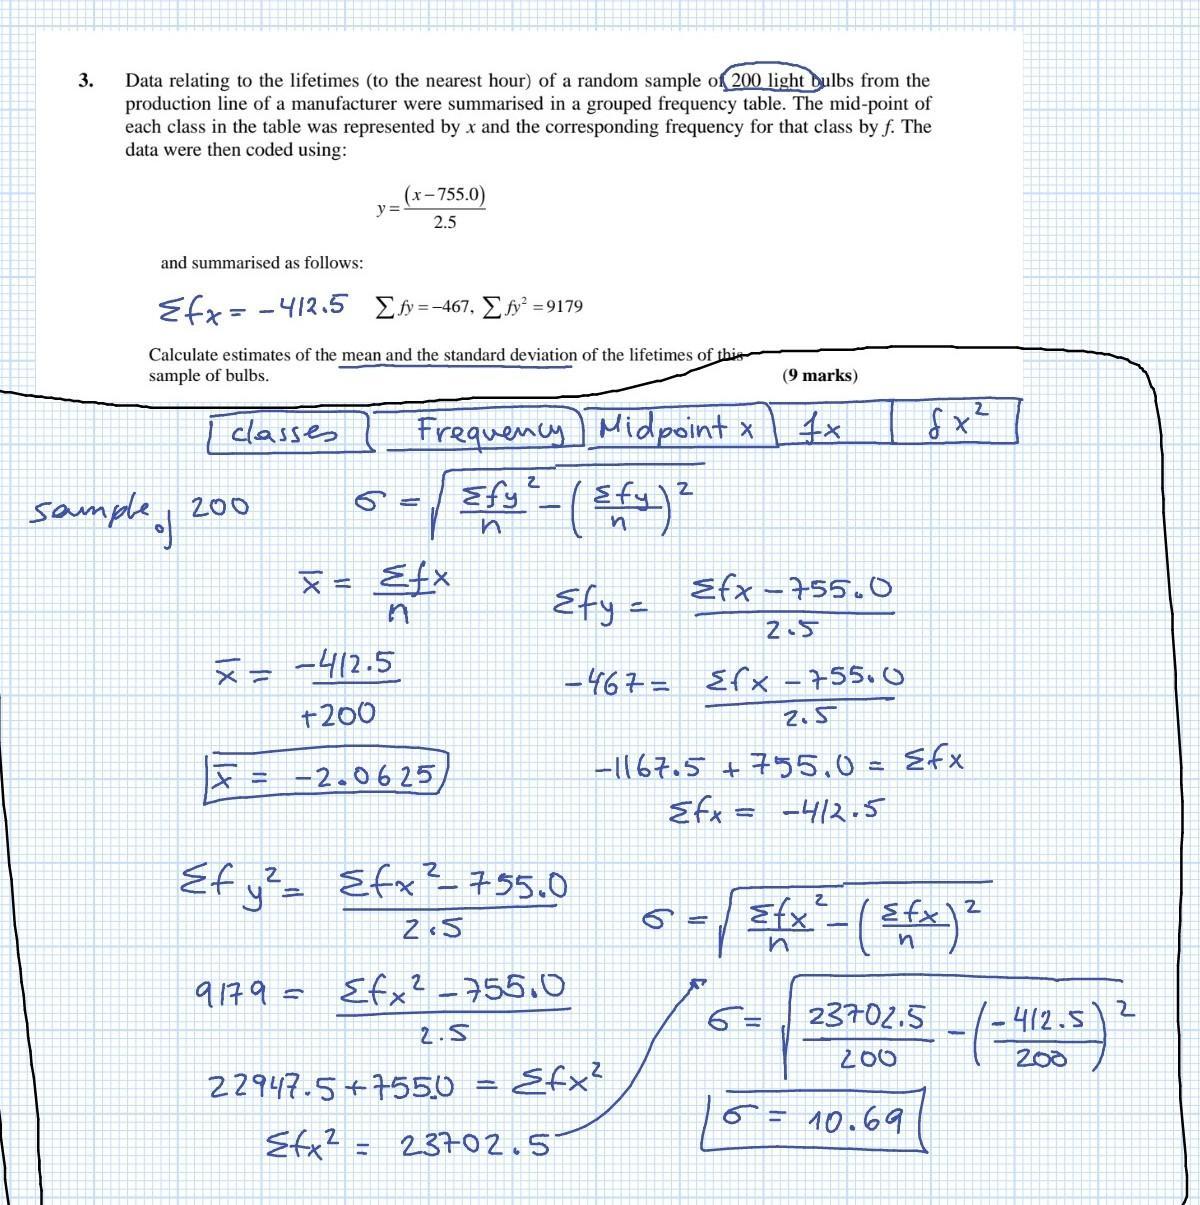 3. Data relating to the lifetimes (to the nearest hour) of a random sample of 200 light bulbs from the
production line of a manufacturer were summarised in a grouped frequency table. The mid-point of
each class in the table was represented by x and the corresponding frequency for that class by f. The
data were then coded using:
y = (x − 755.0) / 2.5
and summarised as follows:
Σfx = -412.5 ∑ fy = −467, ∑ fy² = 9179
Calculate estimates of the mean and the standard deviation of the lifetimes of this
sample of bulbs. (9 marks)
classes Frequency Midpoint x fx fx²
sample of 200 σ = √(Σfy²/n − (Σfy/n)²)
x̄ = Σfx/n Σfy = (Σfx − 755.0)/2.5
x̄ = −412.5/+200 −467 = (Σfx − 755.0)/2.5
x̄ = −2.0625 −1167.5 + 755.0 = Σfx
Σfx = −412.5
Σfy² = (Σfx² − 755.0)/2.5 σ = √(Σfx²/n − (Σfx/n)²)
9179 = (Σfx² − 755.0)/2.5 σ = √(23702.5/200 − (−412.5/200)²)
22947.5 + 755.0 = Σfx² σ = 10.69
Σfx² = 23702.5